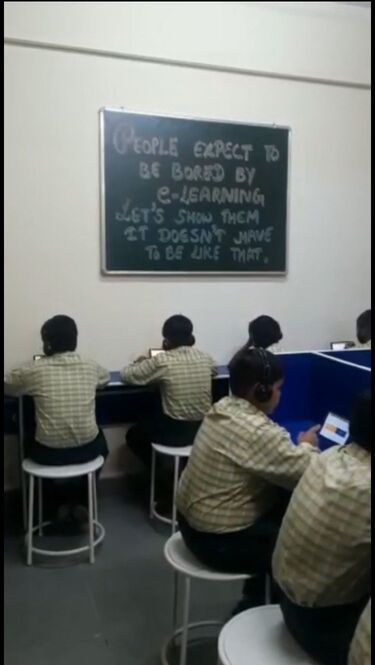 PEOPLE EXPECT TO
BE BORED BY
e-LEARNING
LET'S SHOW THEM
IT DOESN'T HAVE
TO BE LIKE THAT.